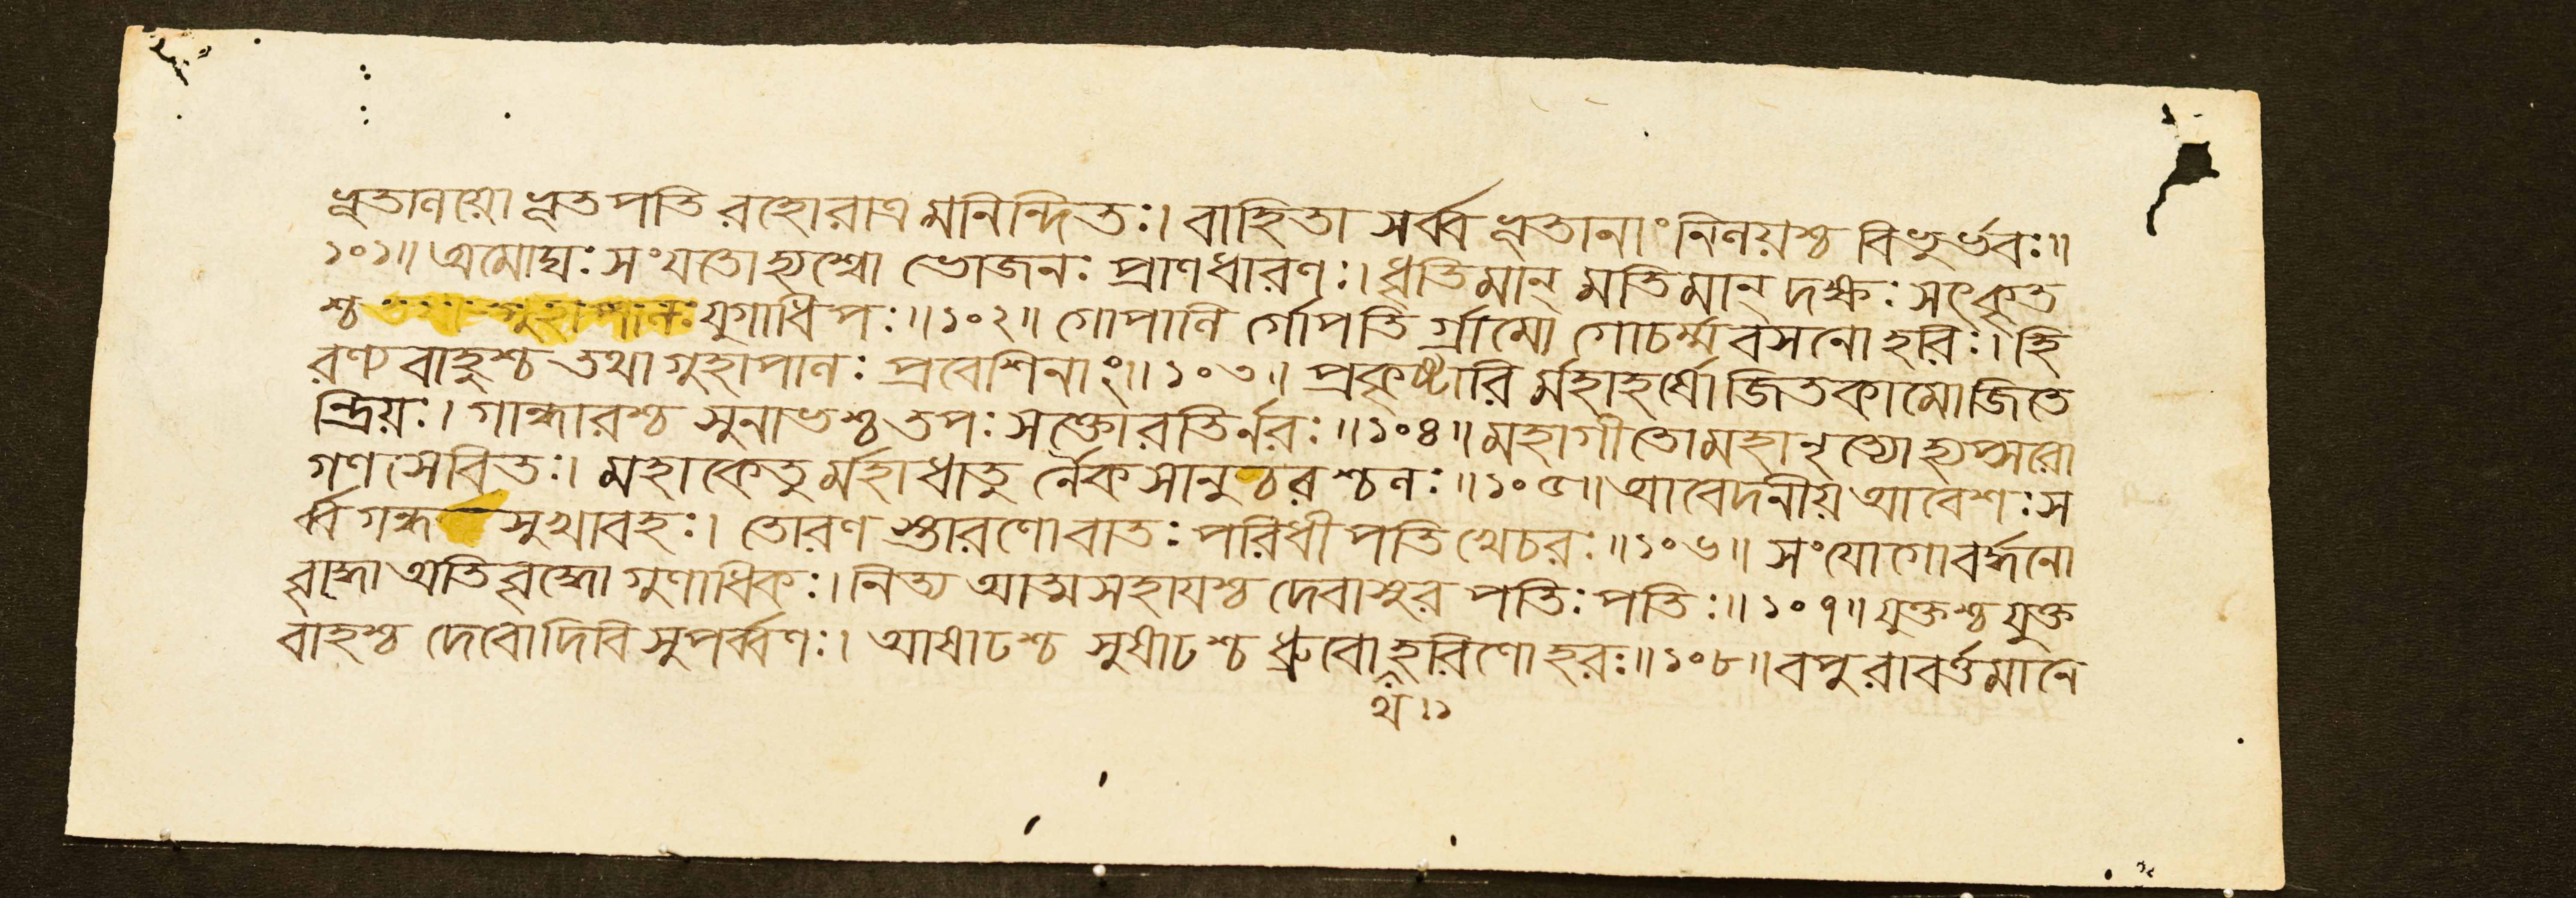 ভূতালয়ো ভূতপতি রহোরাত্র মনিন্দিতঃ। বাহিতা সর্ব্বভূতানাং নিলয়শ্চ বিভুর্ভবঃ॥
১০১॥ অমোঘঃ সংযতোহ্যশ্বো ভোজনঃ প্রাণধারণঃ। ধৃতিমান্ মতিমান্ দক্ষঃ সৎকৃত
শ্চ যুগাধিপঃ॥১০২॥ গোপালি র্গোপতি র্গ্রামো গোচর্ম্মবসনো হরিঃ। হি
রণ্যবাহুশ্চ তথা গুহাপালঃ প্রবেশিনাং॥১০৩॥ প্রকৃষ্টারি র্মহাহর্ষো জিতকামো জিতে
ন্দ্রিয়ঃ। গান্ধারশ্চ সুনাভশ্চ তপঃ সক্তোরতির্নরঃ॥১০৪॥ মহাগীতোমহানৃত্যোহ্যপ্সরো
গণসেবিতঃ। মহাকেতুর্মহাধাতু র্নৈকসানুশ্চরশ্চলঃ॥১০৫॥ আবেদনীয় আবেশঃ স
র্ব্বগন্ধ সুখাবহঃ। তোরণ স্তারণোবাতঃ পরিধী পতি খেচরঃ॥১০৬॥ সংযোগোবর্দ্ধনো
বৃদ্ধো অতিবৃদ্ধো গুণাধিকঃ। নিত্য আত্মসহাযশ্চ দেবাসুর পতিঃ পতিঃ॥১০৭॥ যুক্তশ্চ যুক্ত
বাহশ্চ দেবোদিবি সুপর্ব্বণঃ। আষাঢশ্চ সুষাঢশ্চ ধ্রুবোহরিণো হরঃ॥১০৮॥ বপুরাবর্ত্তমানে